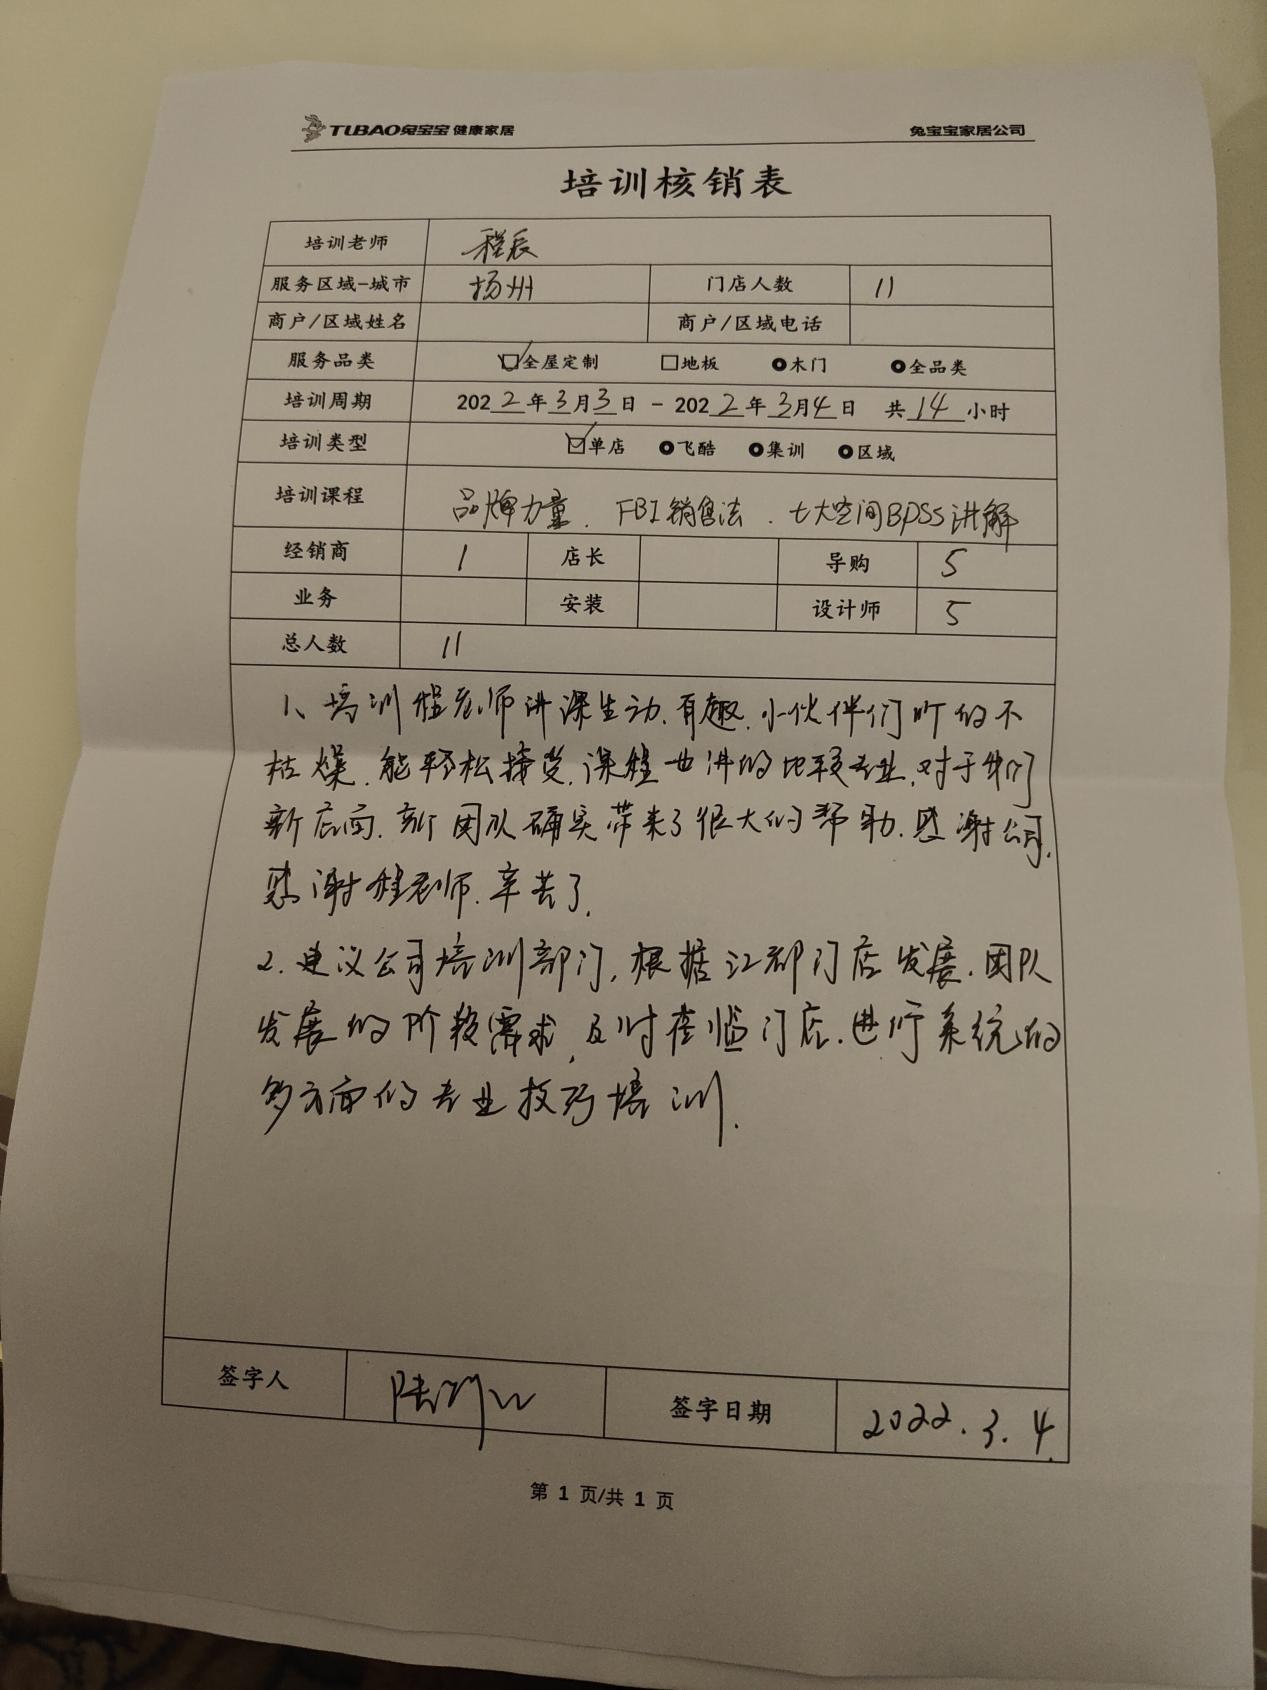 TUBAO兔宝宝 健康家居 兔宝宝家居公司
培训核销表
培训老师 程辰
服务区域-城市 扬州 门店人数 11
商户/区域姓名 商户/区域电话
服务品类 全屋定制 地板 木门 全品类
培训周期 2022年3月3日 - 2022年3月4日 共14小时
培训类型 单店 飞酷 集训 区域
培训课程 品牌力量、FBI销售法、七大空间BPSS讲解
经销商 1 店长 导购 5
业务 安装 设计师 5
总人数 11
1、培训程老师讲课生动、有趣、小伙伴们听的不
枯燥、能轻松接受、课程也讲的比较专业、对于我们
新店面、新团队确实带来了很大的帮助、感谢公司、
感谢程老师、辛苦了.
2、建议公司培训部门、根据江都门店发展、团队
发展的阶段需求、及时莅临门店、进行系统的
多方面的专业技巧培训.
签字人 签字日期 2022.3.4
第 1 页/共 1 页